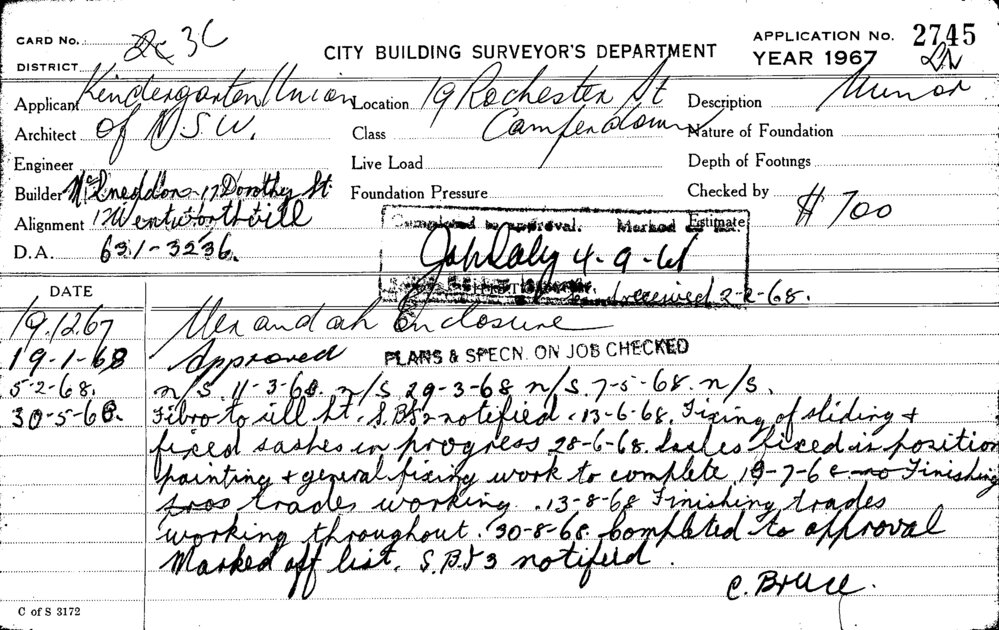 CARD No. 2c 3C
CITY BUILDING SURVEYOR'S DEPARTMENT
APPLICATION No. 2745
DISTRICT
YEAR 1967
Applicant Kindergarten Union Location 19 Rochester St Description Minor
Architect of N.S.W. Class Camperdown Nature of Foundation
Engineer Live Load Depth of Footings
Builder 17 Dorothy St. Foundation Pressure Checked by $700
Alignment Wentworthvill Completed to approval. Marked off list. Estimate
D.A. 631-3236. 4-9-68
received 2-2-68.
DATE
19.12.67 Verandah Enclosure
19-1-68 Approved PLANS & SPECN. ON JOB CHECKED
5-2-68. n/S. 11-3-68. n/S. 29-3-68 n/S. 7-5-68. n/S.
30-5-68. Fibro to sill ht. S.B.S 2 notified. 13-6-68. Fixing of sliding +
fixed sashes in progress 28-6-68. Sashes fixed in position
painting + general fixing work to complete. 19-7-68 Finishing
trades working. 13-8-68 Finishing trades
working throughout. 30-8-68. Completed to approval
Marked off list. S.B.S 3 notifeid.
C. Bruce.
C of S 3172